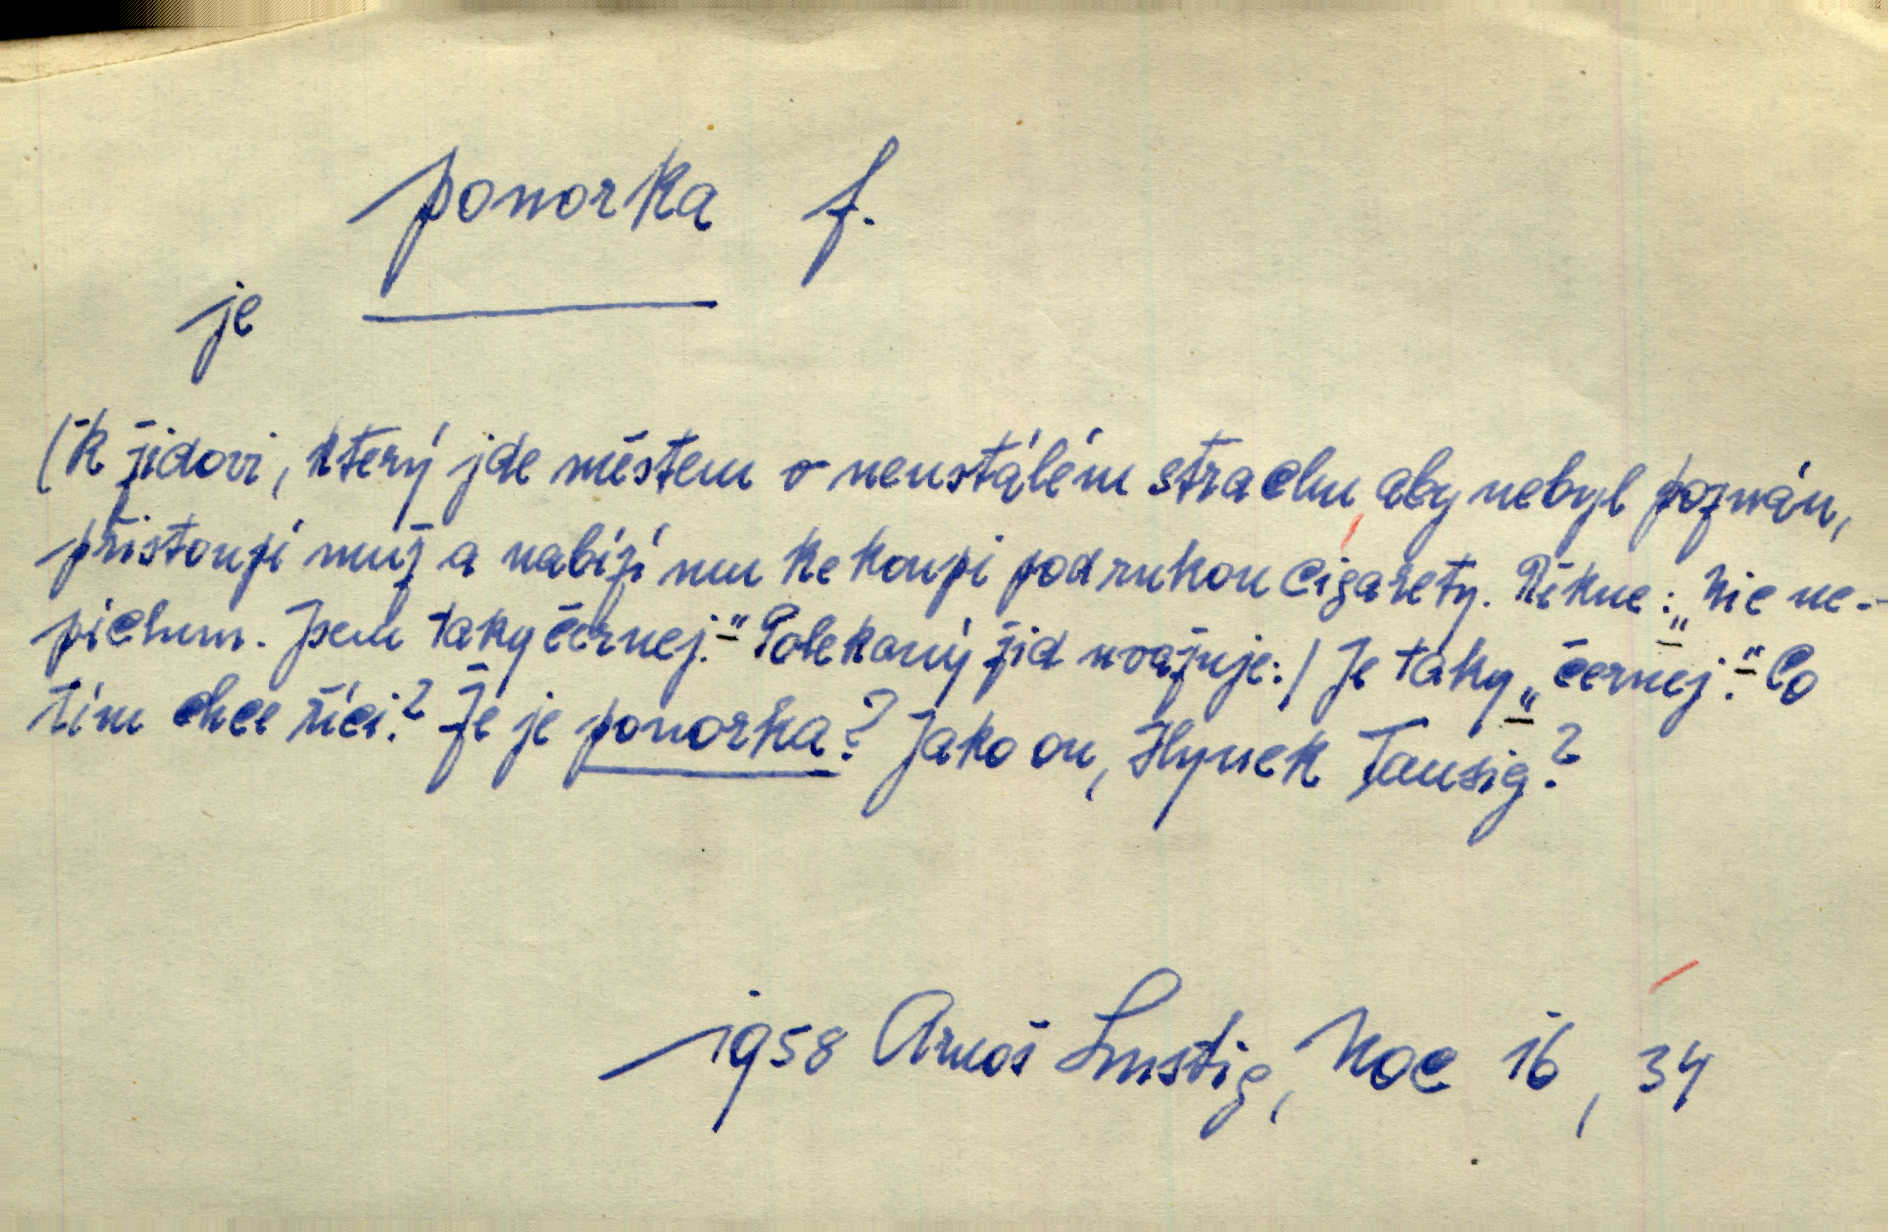 ponorka f.
je
(K židovi, který jde městem v neustálém strachu, aby nebyl poznán,
přistoupí muž a nabízí mu ke koupi pod rukou cigarety. Řekne: „Nic ne-
píchnu. Jsem taky černej." Polekaný žid uvažuje:/ Je taky „černej". Co
tím chce říci? Že je ponorka? Jako on, Hynek Tausig?
1958 Arnošt Lustig, Noc 16, 34